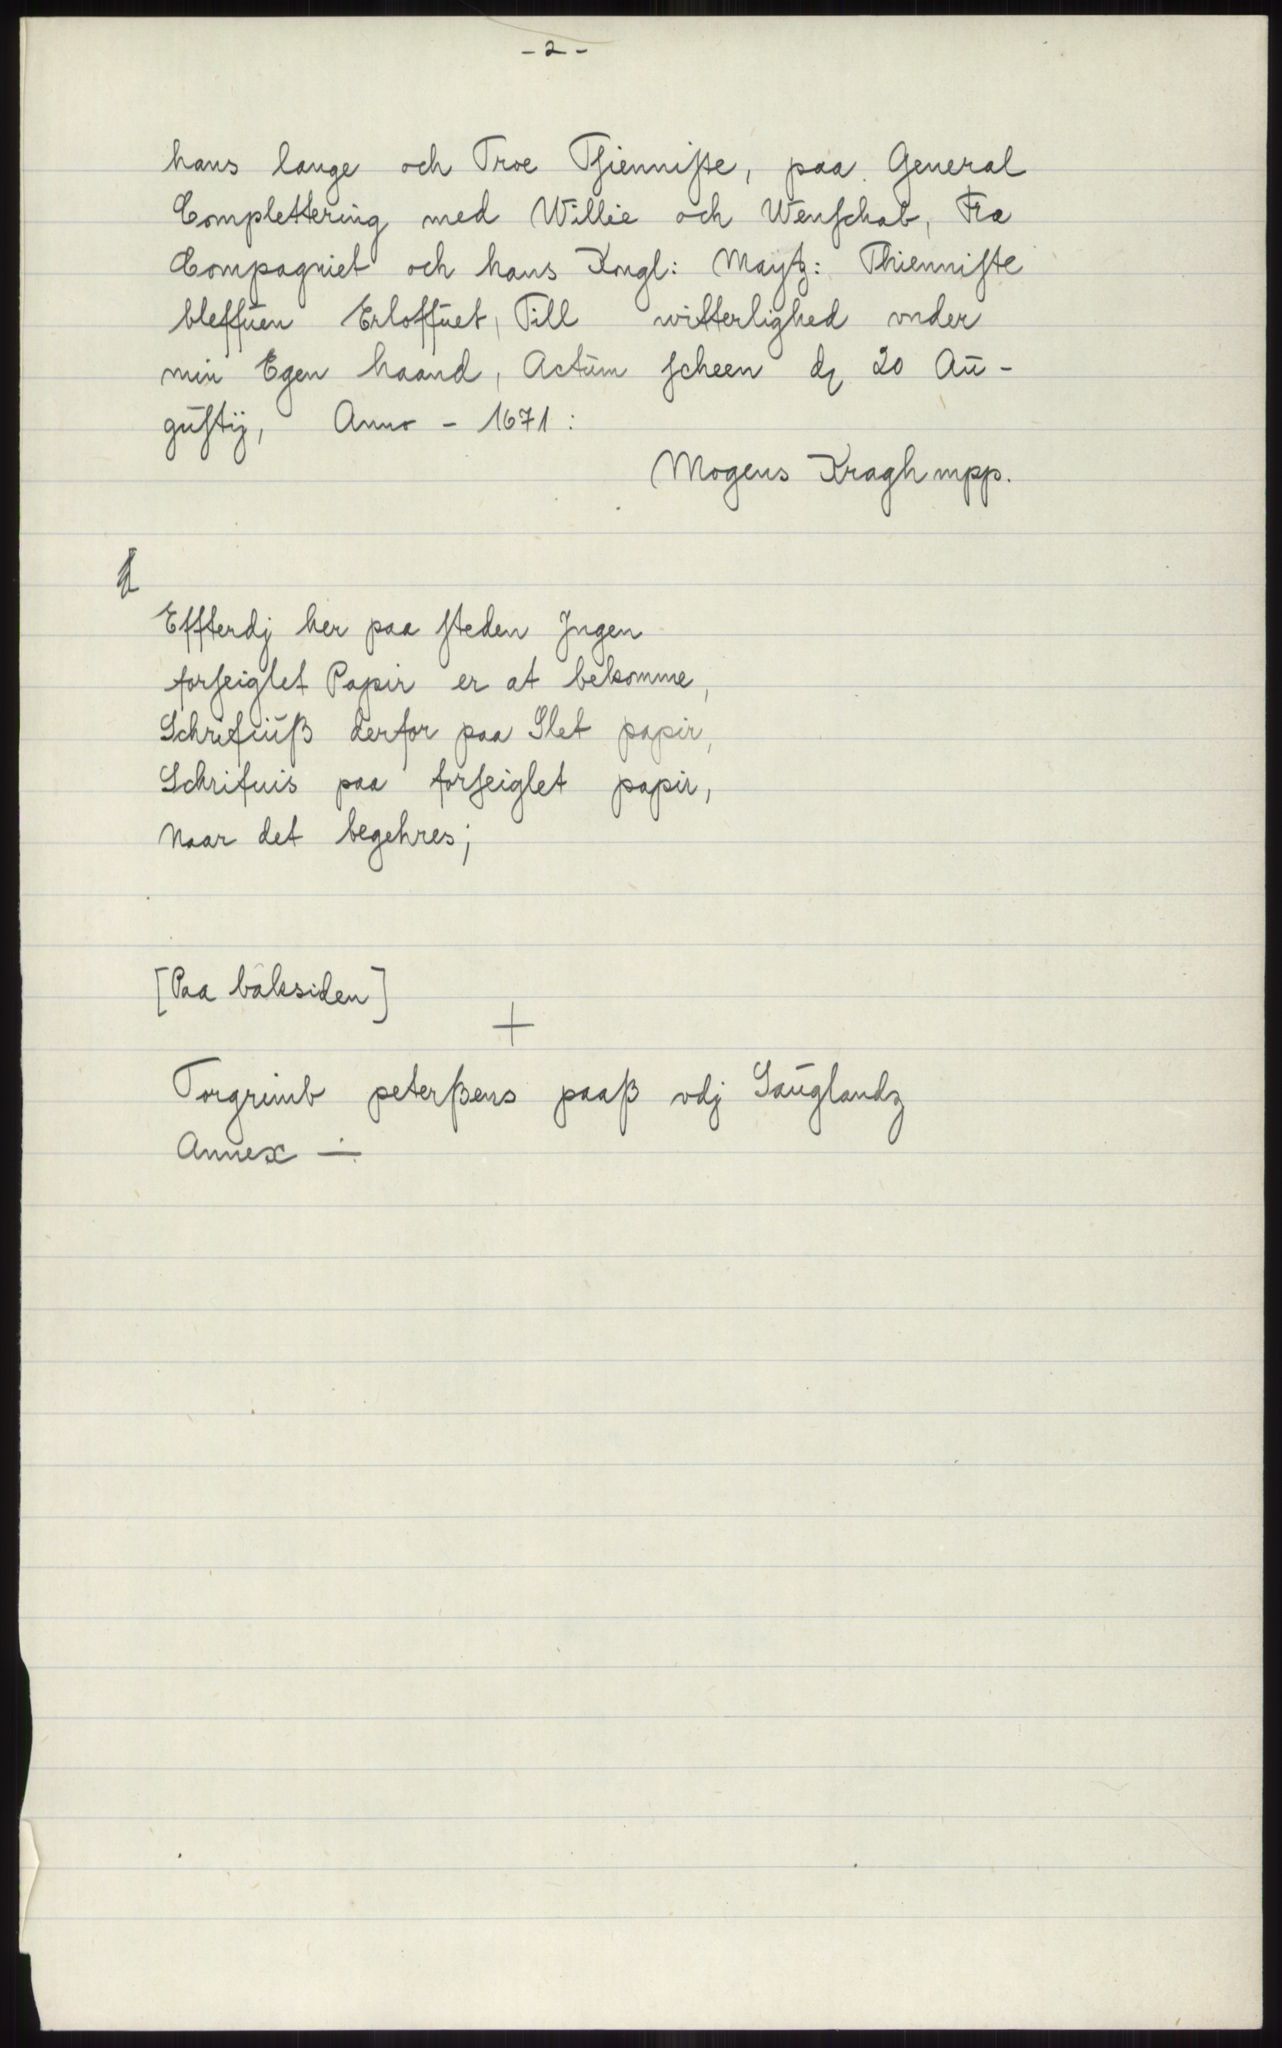 - 2 -
hans lange och Troe Thienniste, paa General
Complettering med Willie och Wenschab, Fra
Compagniet och hans Kongl: Maytz: Thienniste
bleffuen Erloffuet, Till witterlighed vnder
min Egen haand, Actum scheen dꝫ 20 Au-
gustij, Anno - 1671:
Mogens Kragh mpp.
Effterdj her paa steden Jngen
forseiglet Papir er at bekomme,
Schrifuüß derfor paa Slet papir,
Schrifuis paa forseiglet papir,
Naar det begehres;
[Paa baksiden]
+
Torgrimb peterßens paaß vdj Sauglandz
Annex ÷